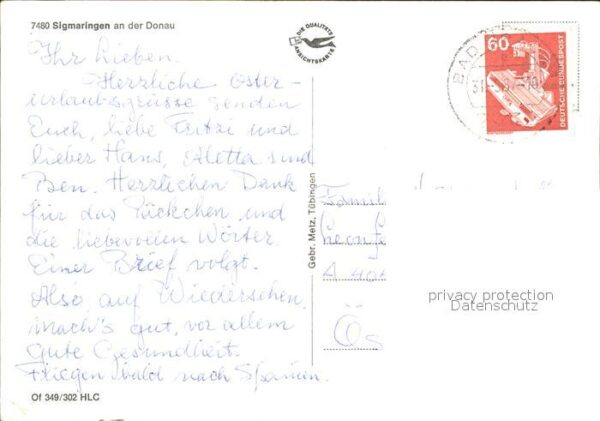 7480 Sigmaringen an der Donau
DIE QUALITÄTS
ANSICHTSKARTE
Ihr Lieben.
Herrliche Oster-
urlaubsgrüsse senden
Euch, liebe Fritzi und
lieber Hans, Aletta und
Ben. Herzlichen Dank
für das Päckchen und
die liebevollen Wörter.
Einer Brief volgt.
Also auf Wiedersehen,
mach's gut, vor allem
gute Gesundheit.
Fliegen bald nach Spanien.
Of 349/302 HLC
Gebr. Metz, Tübingen
60
DEUTSCHE BUNDESPOST
BAD
Famil
A 40
Ös
privacy protection
Datenschutz